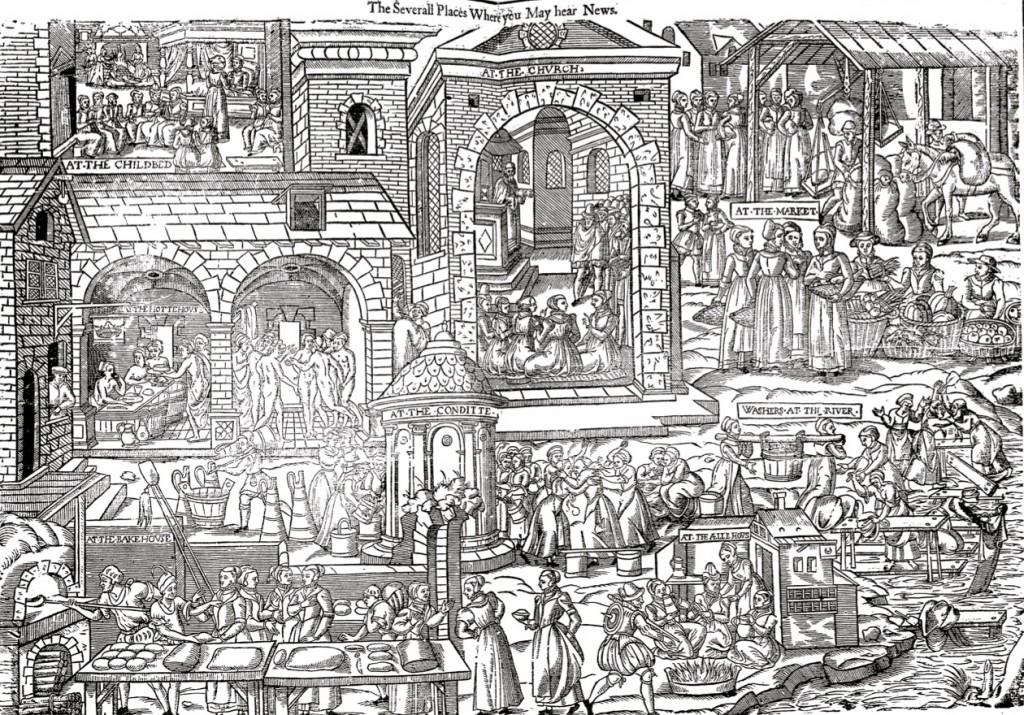 The Severall Places Where you May hear News.
AT·THE·CHVRCH,
AT·THE CHILDBED
AT·THE·MARKET
N THE HOTTEHOUS,
AT·THE·CONDITTE
WASHERS·AT·THE·RIVER,
AT·THE·BAKEHOUSE
AT·THE·ALLEHOUS